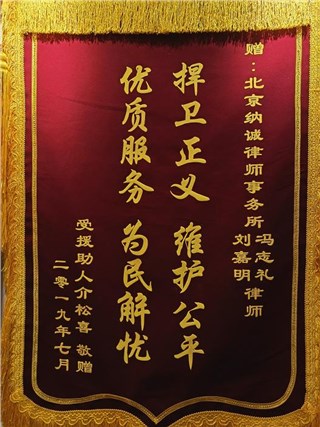 赠：北京纳诚律师事务所冯志礼
刘嘉明律师
捍卫正义 维护公平
优质服务 为民解忧
受援助人介松喜 敬赠
二零一九年七月